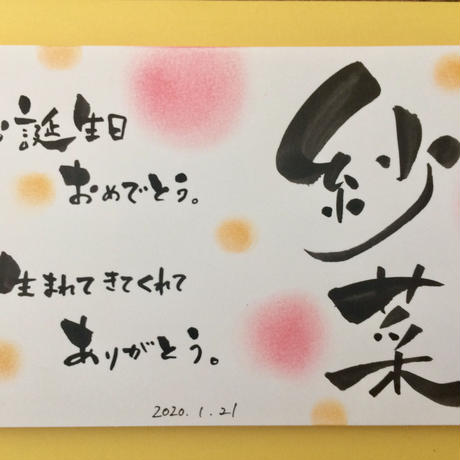 紗菜
お誕生日
おめでとう。
生まれてきてくれて
ありがとう。
2020.1.21